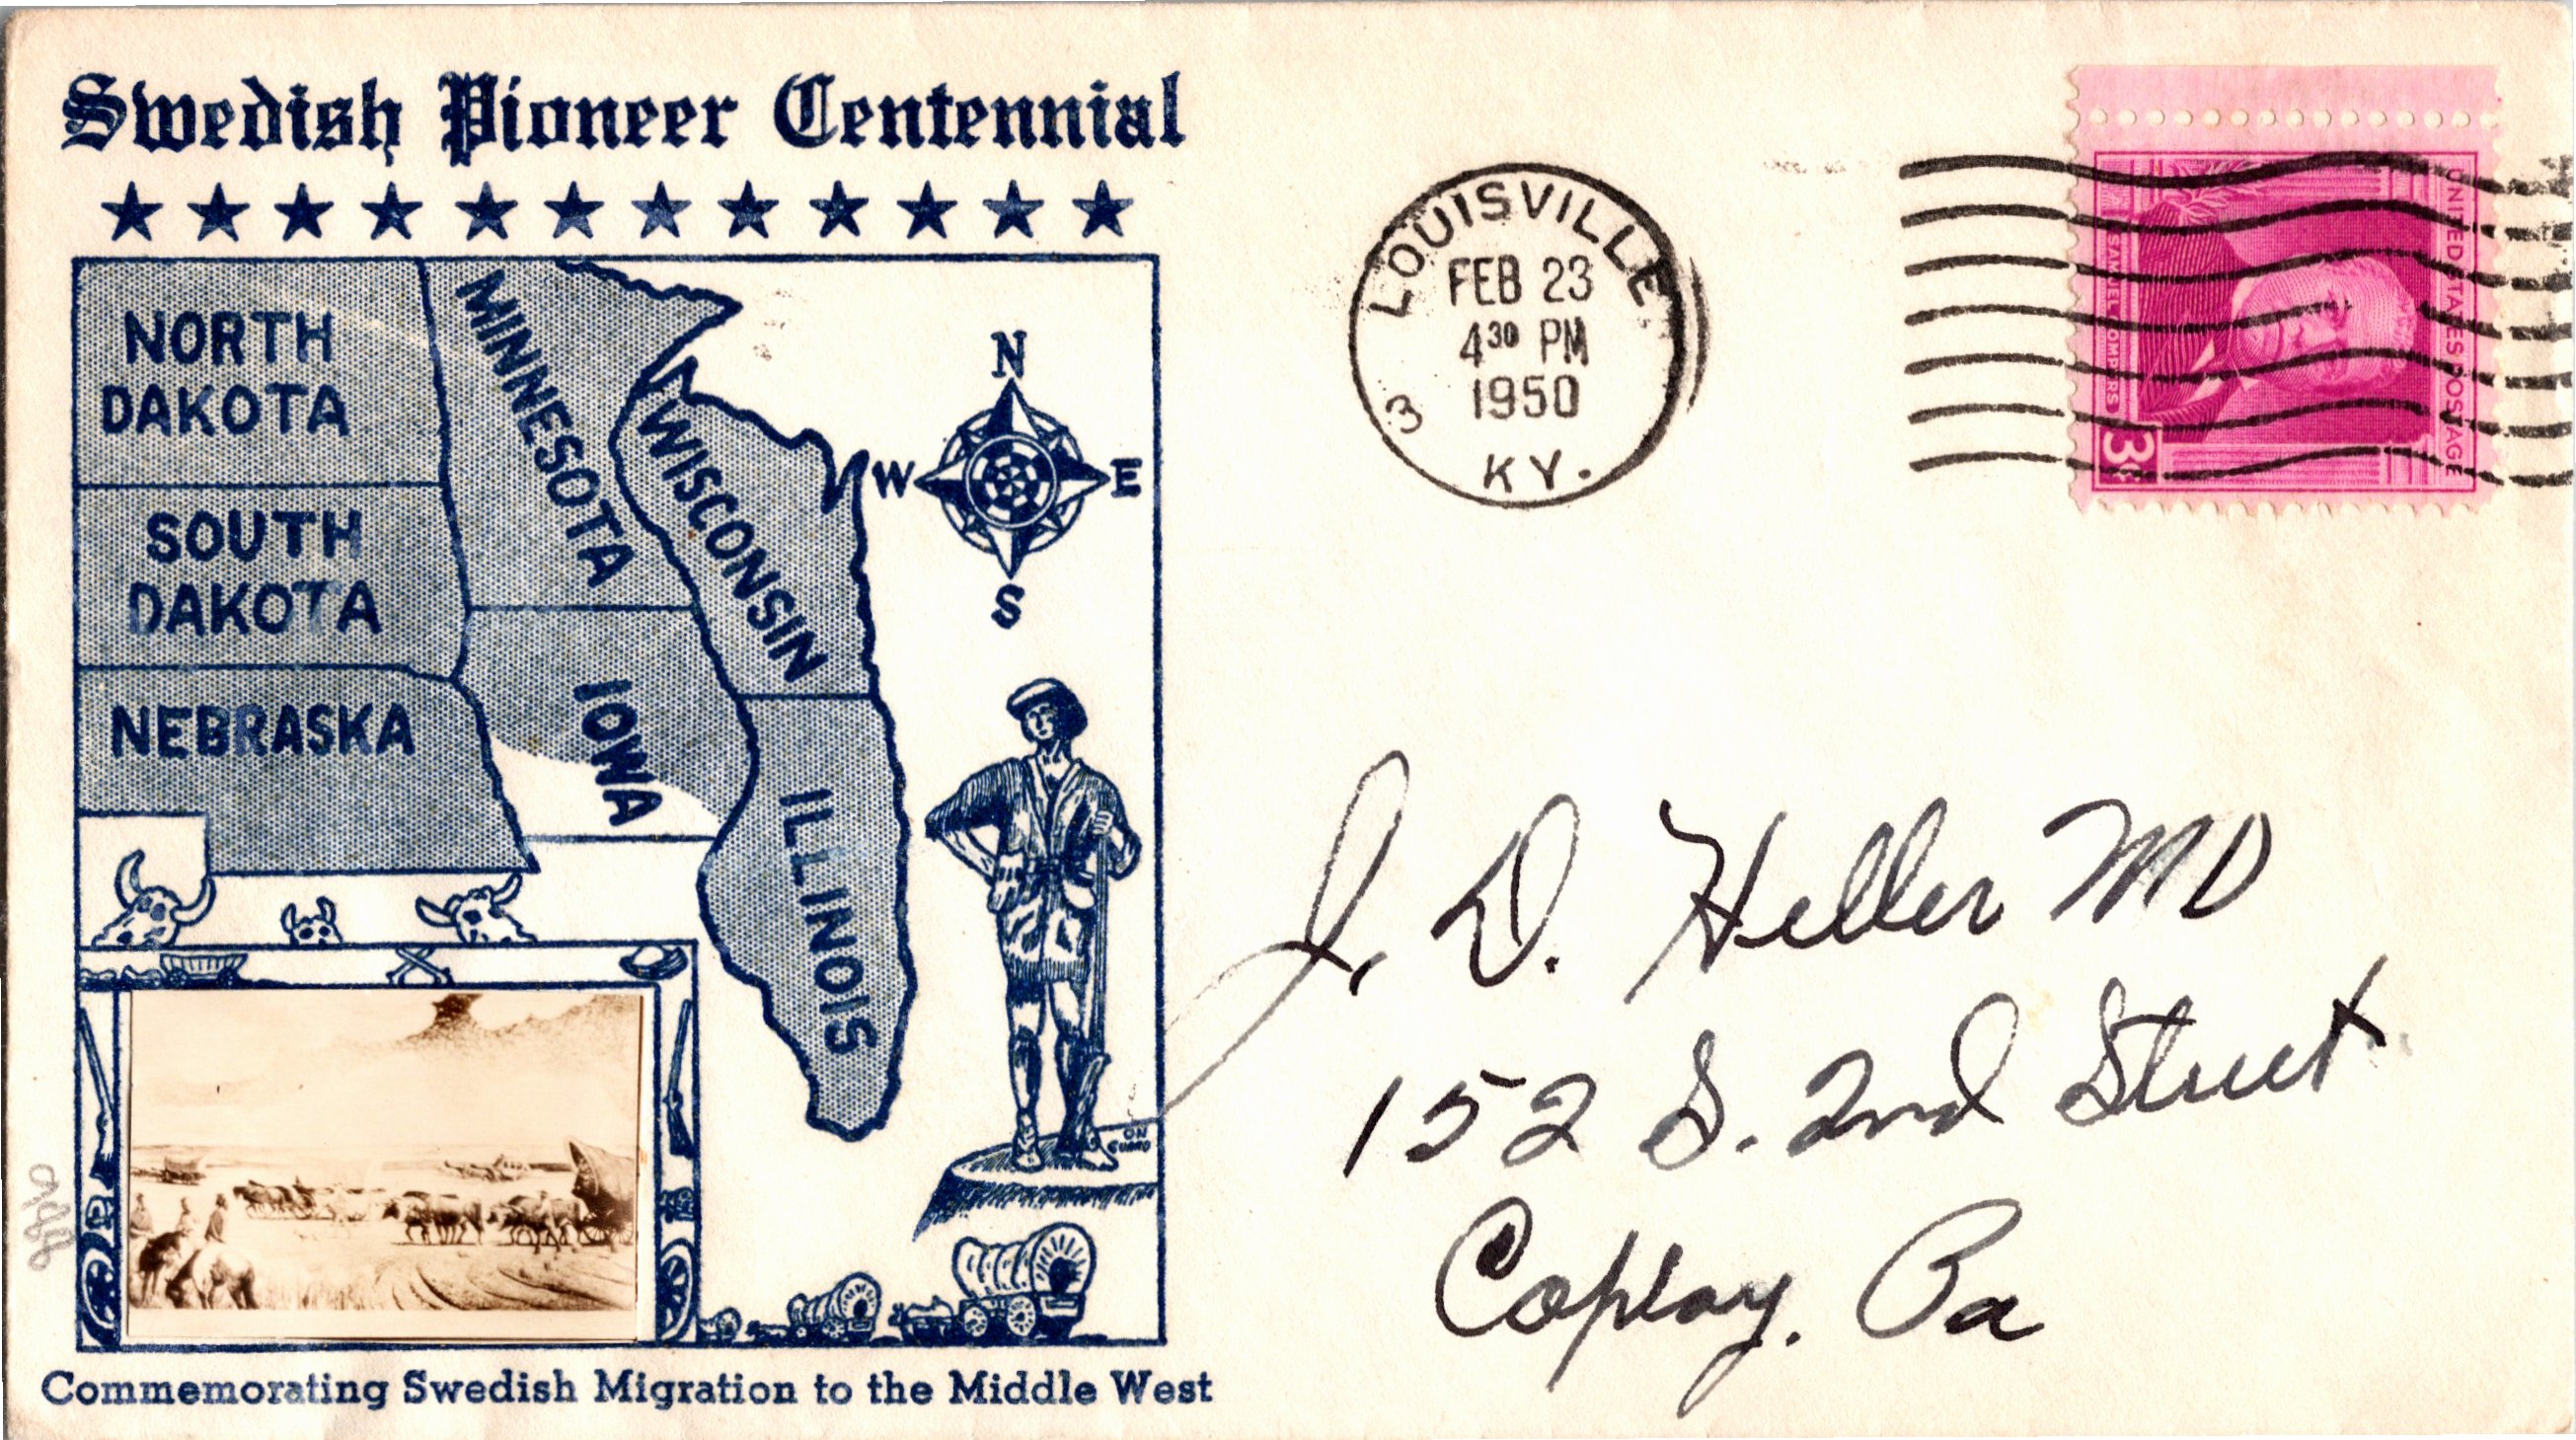 Swedish Pioneer Centennial
NORTH
DAKOTA
MINNESOTA
WISCONSIN
SOUTH
DAKOTA
IOWA
NEBRASKA
ILLINOIS
N
W E
S
ON
GUARD
Commemorating Swedish Migration to the Middle West
LOUISVILLE
FEB 23
4 30 PM
1950
3
KY.
UNITED STATES POSTAGE
SAMUEL GOMPERS
3¢
J. D. Heller MD
152 S. 2nd Street
Coplay, Pa